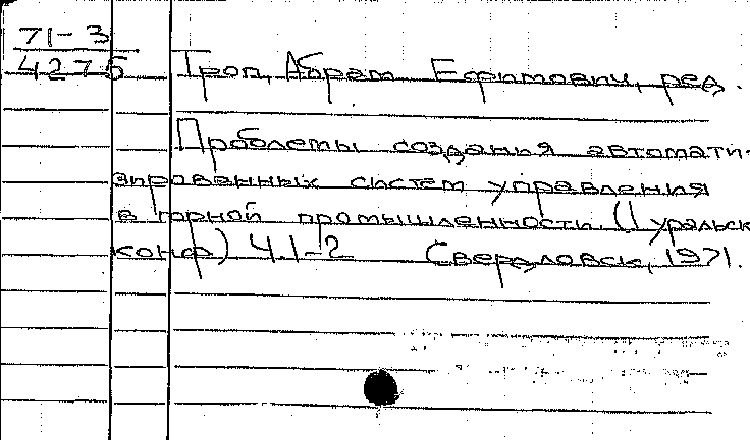 71-3
4275
Троп, Абрам Ефимович, ред.
Проблемы создания автомати-
зированных систем управления
в горной промышленности. (I уральск.
конф.) Ч.1-2 Свердловск, 1971.